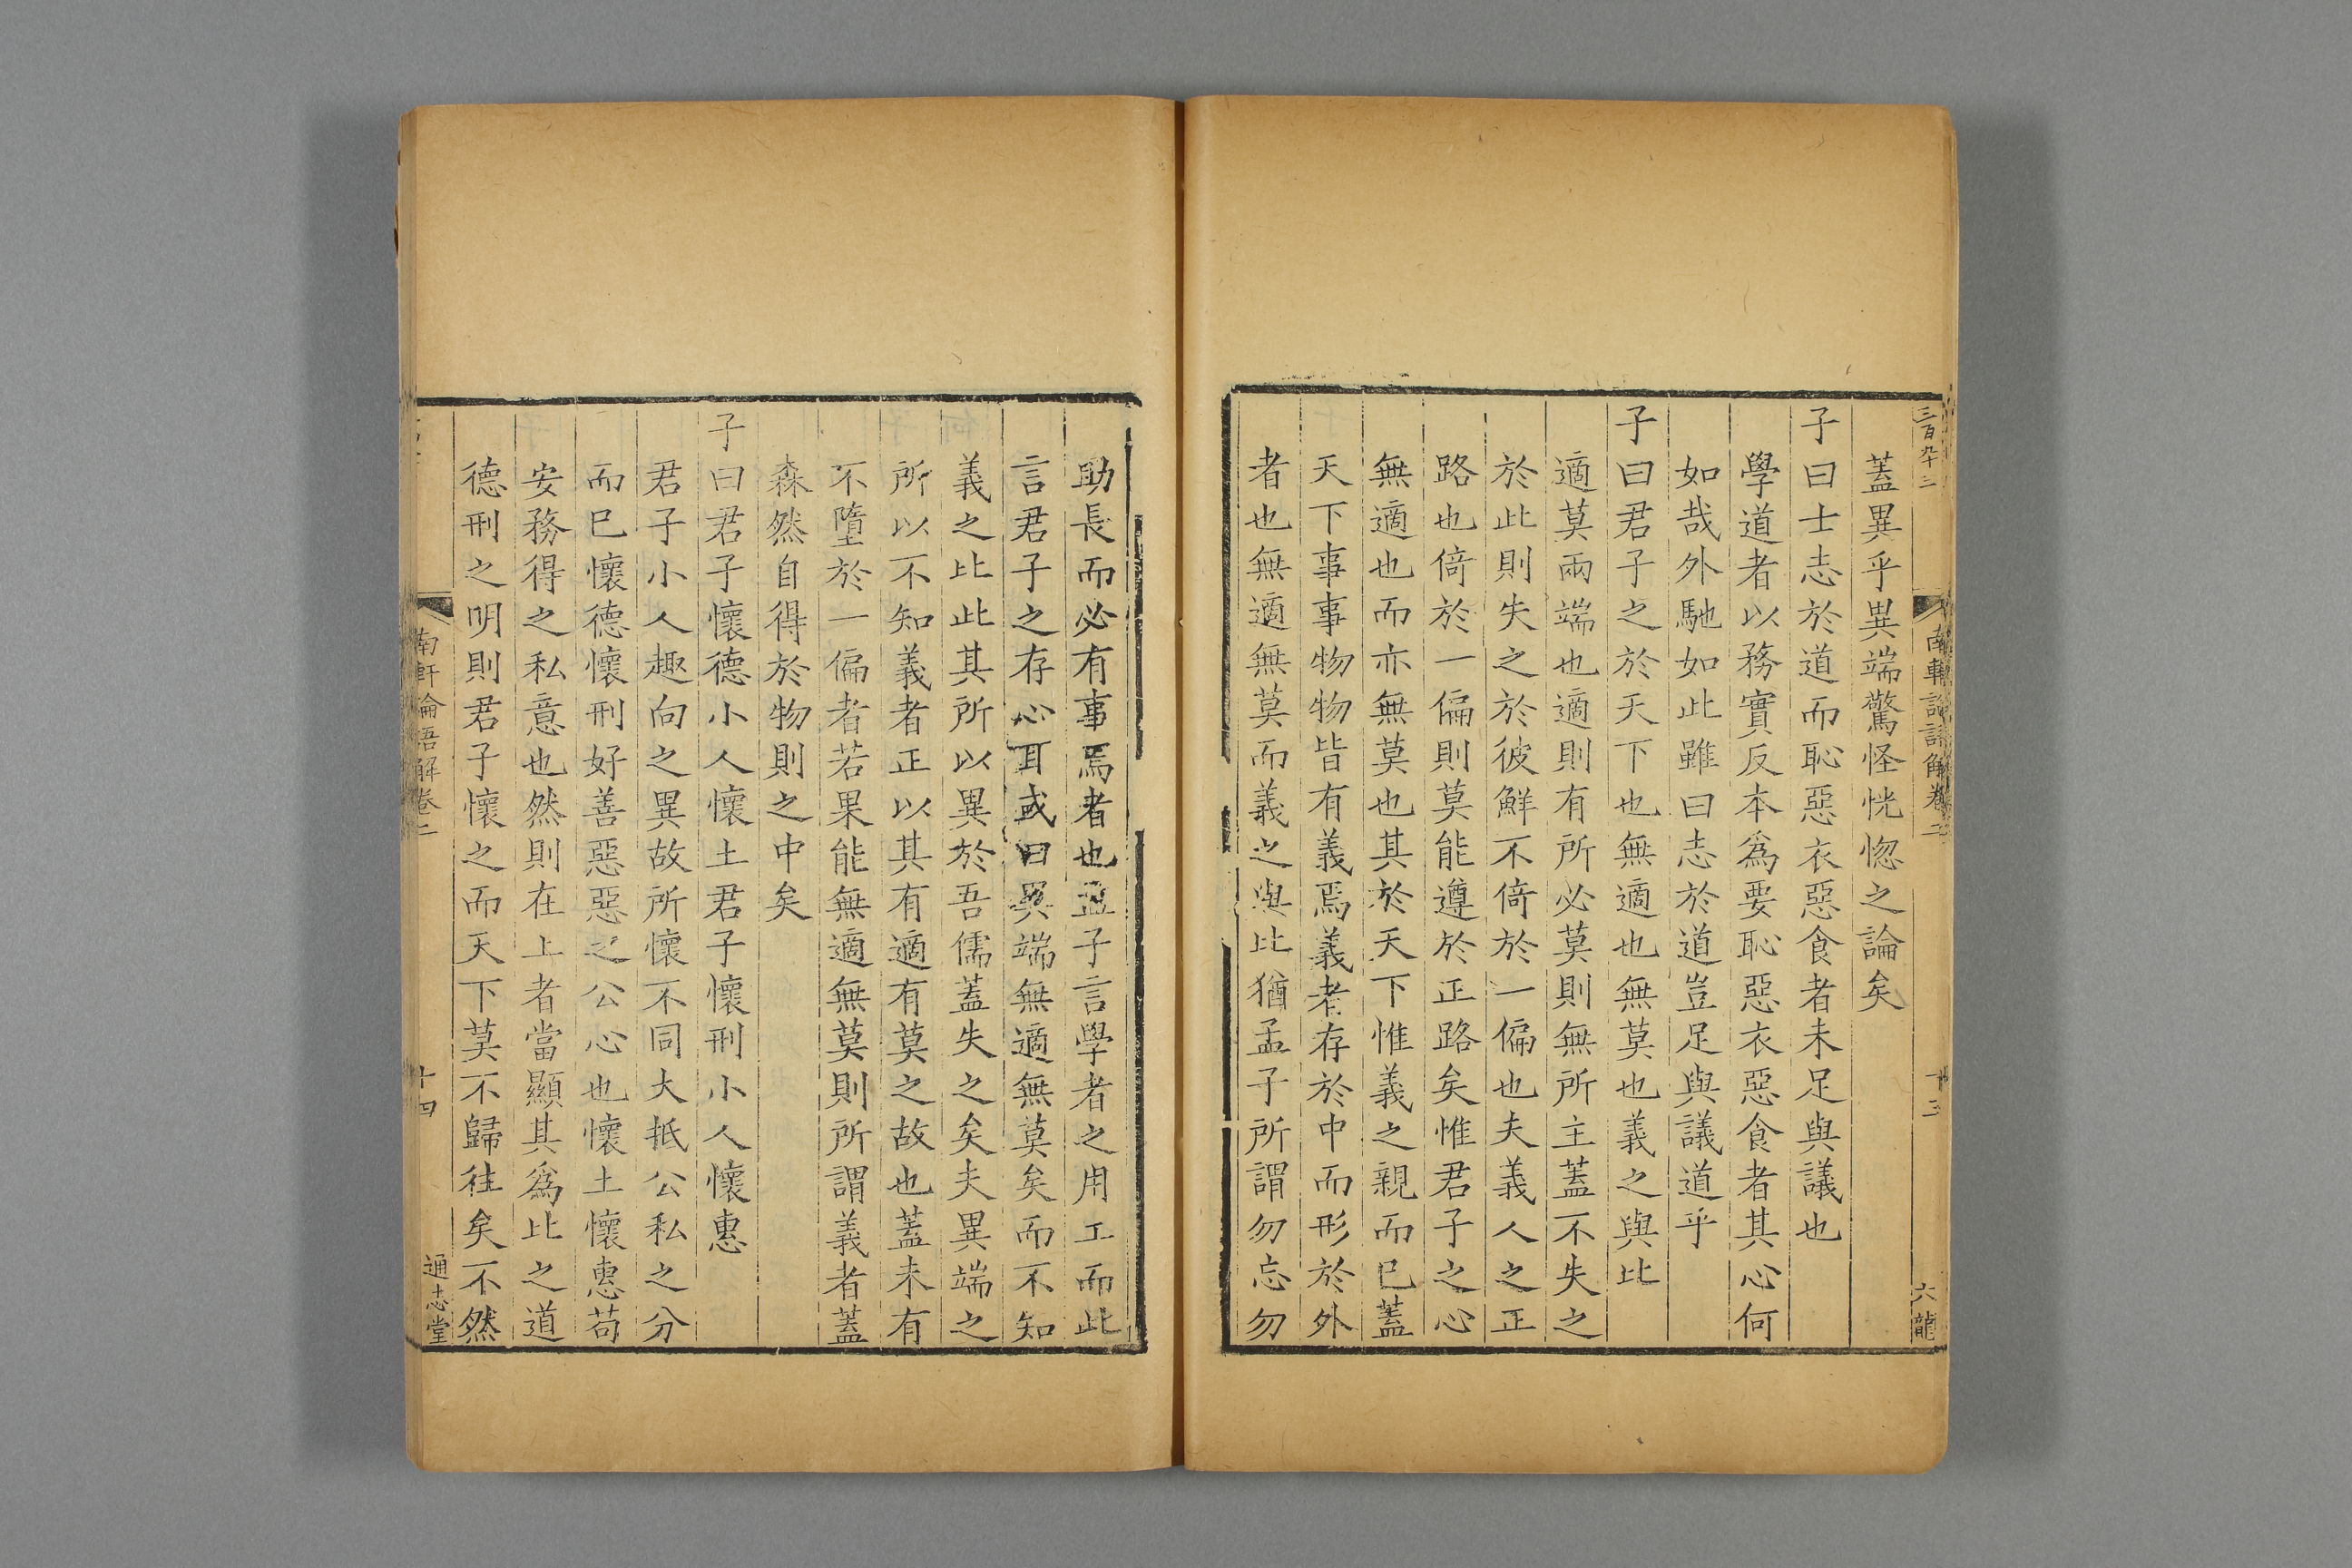 三百九十二
南軒論語解卷二
十三
六龍
蓋異乎異端驚怪恍惚之論矣
子曰士志於道而恥惡衣惡食者未足與議也
學道者以務實反本爲要恥惡衣惡食者其心何
如哉外馳如此雖曰志於道豈足與議道乎
子曰君子之於天下也無適也無莫也義之與比
適莫兩端也適則有所必莫則無所主蓋不失之
於此則失之於彼鮮不倚於一偏也夫義人之正
路也倚於一偏則莫能遵於正路矣惟君子之心
無適也而亦無莫也其於天下惟義之親而已蓋
天下事事物物皆有義焉義者存於中而形於外
者也無適無莫而義之與比猶孟子所謂勿忘勿
助長而必有事焉者也孟子言學者之用工而此
言君子之存心耳或曰異端無適無莫矣而不知
義之比此其所以異於吾儒蓋失之矣夫異端之
所以不知義者正以其有適有莫之故也蓋未有
不墮於一偏者若果能無適無莫則所謂義者蓋
森然自得於物則之中矣
子曰君子懷德小人懷土君子懷刑小人懷惠
君子小人趣向之異故所懷不同大抵公私之分
而已懷德懷刑好善惡惡之公心也懷土懷惠苟
安務得之私意也然則在上者當顯其爲比之道
德刑之明則君子懷之而天下莫不歸往矣不然
南軒論語解卷二
十四
通志堂